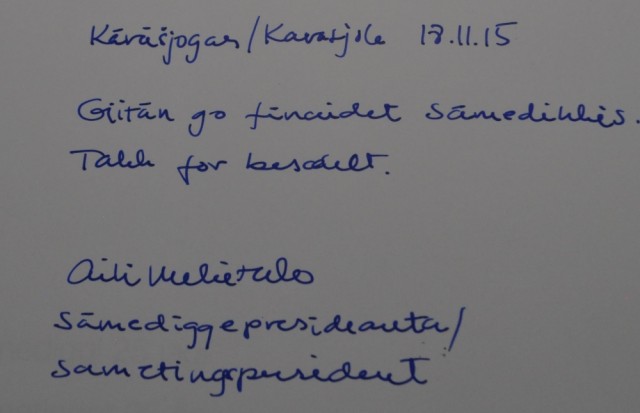 Kárášjogas/Karasjok 18.11.15
Giitán go finaidet Sámedikkis.
Takk for besøket.
Aili Keskitalo
Sámediggepresideanta/
sametingspresident